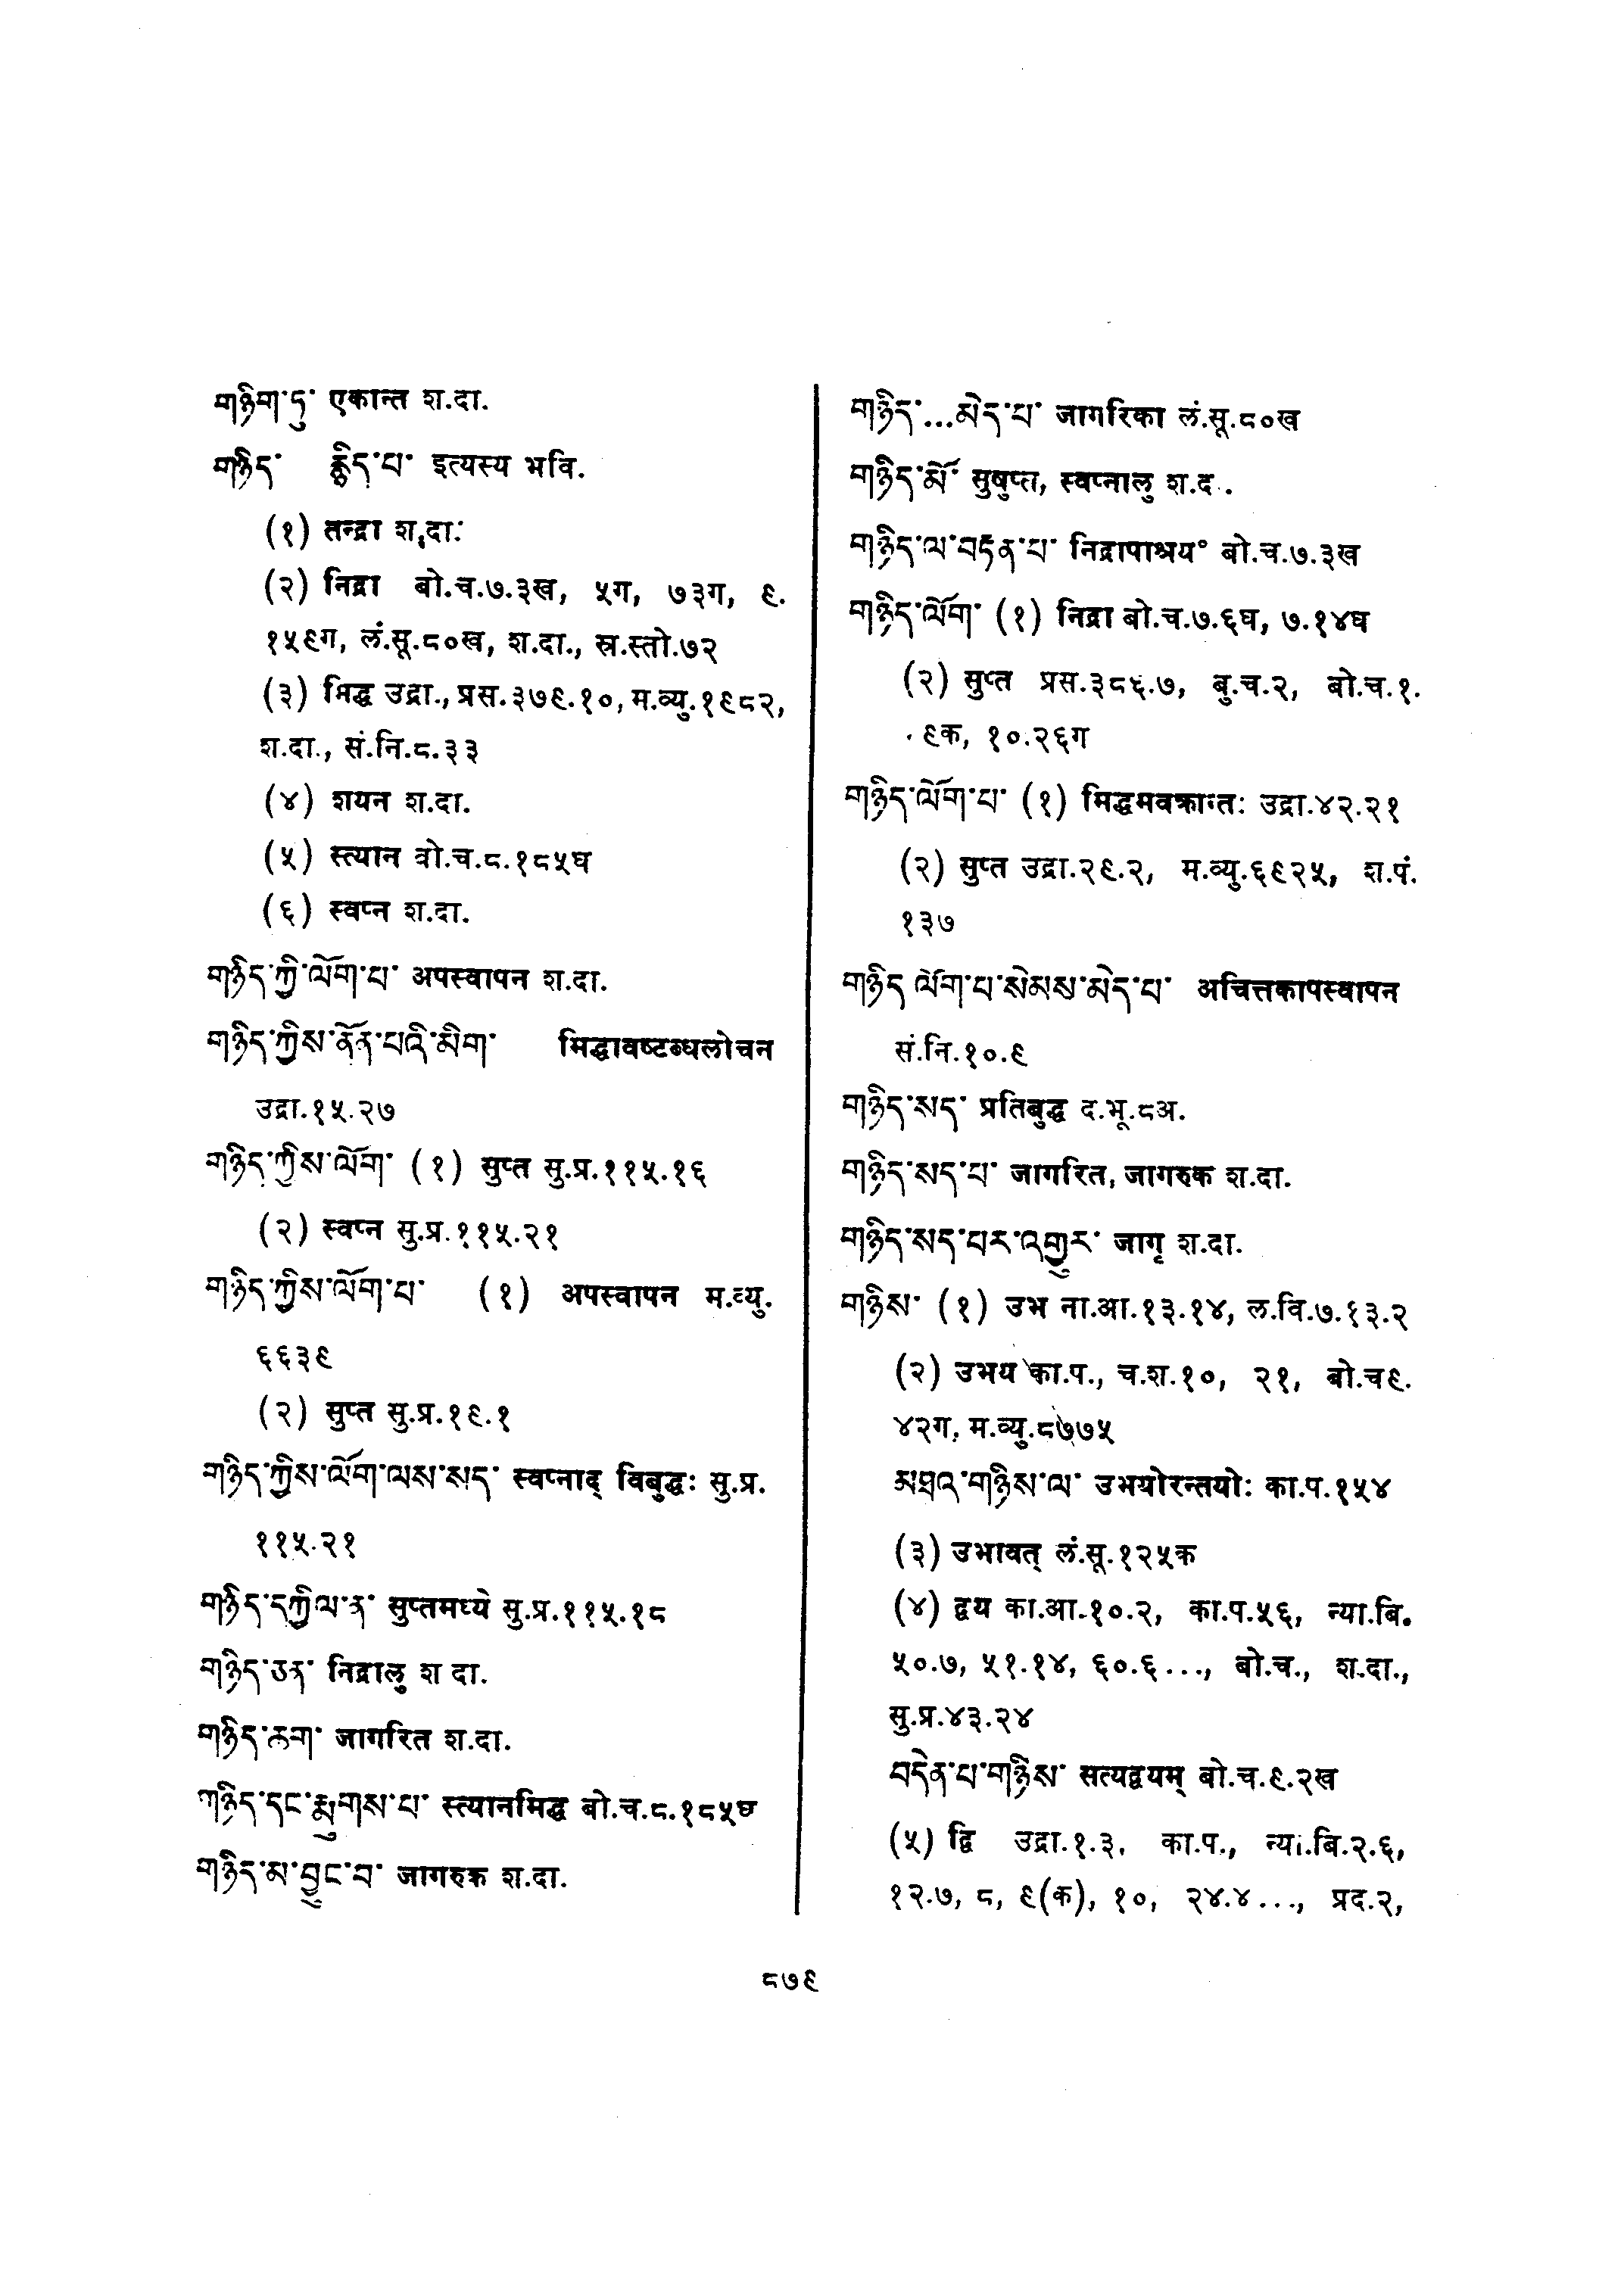 གཉིག་དུ་ एकान्त श.दा.
གཉིད་ རྙིད་པ་ इत्यस्य भवि.
(१) तन्द्रा श.दा.
(२) निद्रा बो.च.७.३ख, ५ग, ७३ग, ९.
१५९ग, लं.सू.८०ख, श.दा., स्र.स्तो.७२
(३) मिद्ध उद्रा., प्रस.३७९.१०, म.व्यु.१९८२,
श.दा., सं.नि.८.३३
(४) शयन श.दा.
(५) स्त्यान वो.च.८.१८५घ
(६) स्वप्न श.दा.
གཉིད་ཀྱི་ལོག་པ་ अपस्वापन श.दा.
གཉིད་ཀྱིས་ནོན་པའི་མིག་ मिद्धावष्टब्धलोचन
उद्रा.१५.२७
གཉིད་ཀྱིས་ལོག་ (१) सुप्त सु.प्र.११५.१६
(२) स्वप्न सु.प्र.११५.२१
གཉིད་ཀྱིས་ལོག་པ་ (१) अपस्वापन म.व्यु.
६६३९
(२) सुप्त सु.प्र.१९.१
གཉིད་ཀྱིས་ལོག་ལས་སད་ स्वप्नाद् विबुद्धः सु.प्र.
११५.२१
གཉིད་དཀྱིལ་ན་ सुप्तमध्ये सु.प्र.११५.१८
གཉིད་ཅན་ निद्रालु श दा.
གཉིད་ཆག་ जागरित श.दा.
གཉིད་དང་རྨུགས་པ་ स्त्यानमिद्ध बो.च.८.१८५घ
གཉིད་མ་བྱུང་བ་ जागरुक श.दा.
གཉིད་...མེད་པ་ जागरिका लं.सू.८०ख
གཉིད་མོ་ सुषुप्त, स्वप्नालु श.द .
གཉིད་ལ་བརྟེན་པ་ निद्रापाश्रय° बो.च.७.३ख
གཉིད་ལོག་ (१) निद्रा बो.च.७.६घ, ७.१४घ
(२) सुप्त प्रस.३८६.७, बु.च.२, बो.च.१.
९क, १०.२६ग
གཉིད་ལོག་པ་ (१) मिद्धमवक्रान्तः उद्रा.४२.२१
(२) सुप्त उद्रा.२९.२, म.व्यु.६९२५, श.पं.
१३७
གཉིད་ལོག་པ་སེམས་མེད་པ་ अचित्तकापस्वापन
सं.नि.१०.९
གཉིད་སད་ प्रतिबुद्ध द.भू.८अ.
གཉིད་སད་པ་ जागरित, जागरुक श.दा.
གཉིད་སད་པར་འགྱུར་ जागृ श.दा.
གཉིས་ (१) उभ ना.आ.१३.१४, ल.वि.७.६३.२
(२) उभय का.प., च.श.१०, २१, बो.च९.
४२ग, म.व्यु.८७७५
མཐའ་གཉིས་ལ་ उभयोरन्तयोः का.प.१५४
(३) उभावत् लं.सू.१२५क
(४) द्वय का.आ.१०.२, का.प.५६, न्या.बि.
५०.७, ५१.१४, ६०.६..., बो.च., श.दा.,
सु.प्र.४३.२४
བདེན་པ་གཉིས་ सत्यद्वयम् बो.च.९.२ख
(५) द्वि उद्रा.१.३, का.प., न्या.बि.२.६,
१२.७, ८, ९(क), १०, २४.४..., प्रद.२,
८७९